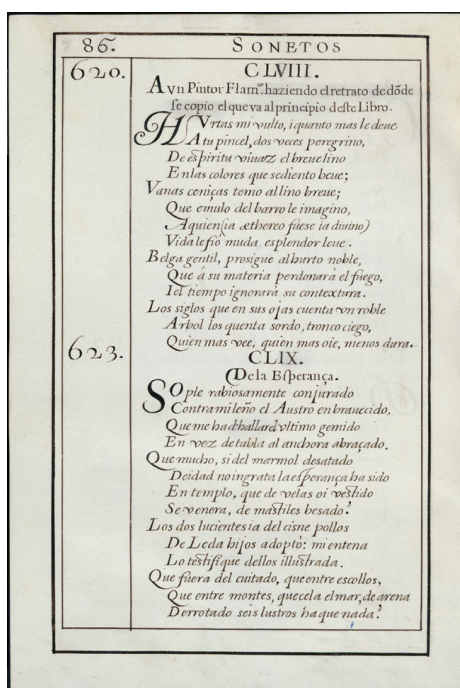 86. SONETOS
620. CLVIII.
A vn Pintor Flam.co haziendo el retrato de dõde
se copio el que va al principio deste Libro.
HVrtas mi vulto, i quanto mas le deue
A tu pincel, dos vezes peregrino,
De espiritu viuaz el breue lino
En las colores que sediento beue;
Vanas ceniças temo al lino breue;
Que emulo del barro le imagino,
A quien (ia æthereo fuese ia diuino)
Vida le fió muda, esplendor leue.
Belga gentil, prosigue al hurto noble,
Que á su materia perdonará el fuego,
I el tiempo ignorará su contextura.
Los siglos que en sus ojas cuenta vn roble
Arbol los quenta sordo, tronco ciego,
Quien mas vee, quien mas oie, menos dura.
623. CLIX.
De la Esperança.
SOple rabiosamente conjurado
Contra mi leño el Austro enbrauecido,
Que me ha de hallar el vltimo gemido
En vez de tabla al anchora abraçado.
Que mucho, si del marmol desatado
Deidad no ingrata la esperança ha sido
En templo, que de velas oi vestido
Se venera, de mastiles besado?
Los dos lucientes ia del cisne pollos
De Leda hijos adoptò: mi entena
Lo testifique dellos illustrada.
Que fuera del cuitado, que entre escollos,
Que entre montes, que cela el mar, de arena
Derrotado seis lustros ha que nada?